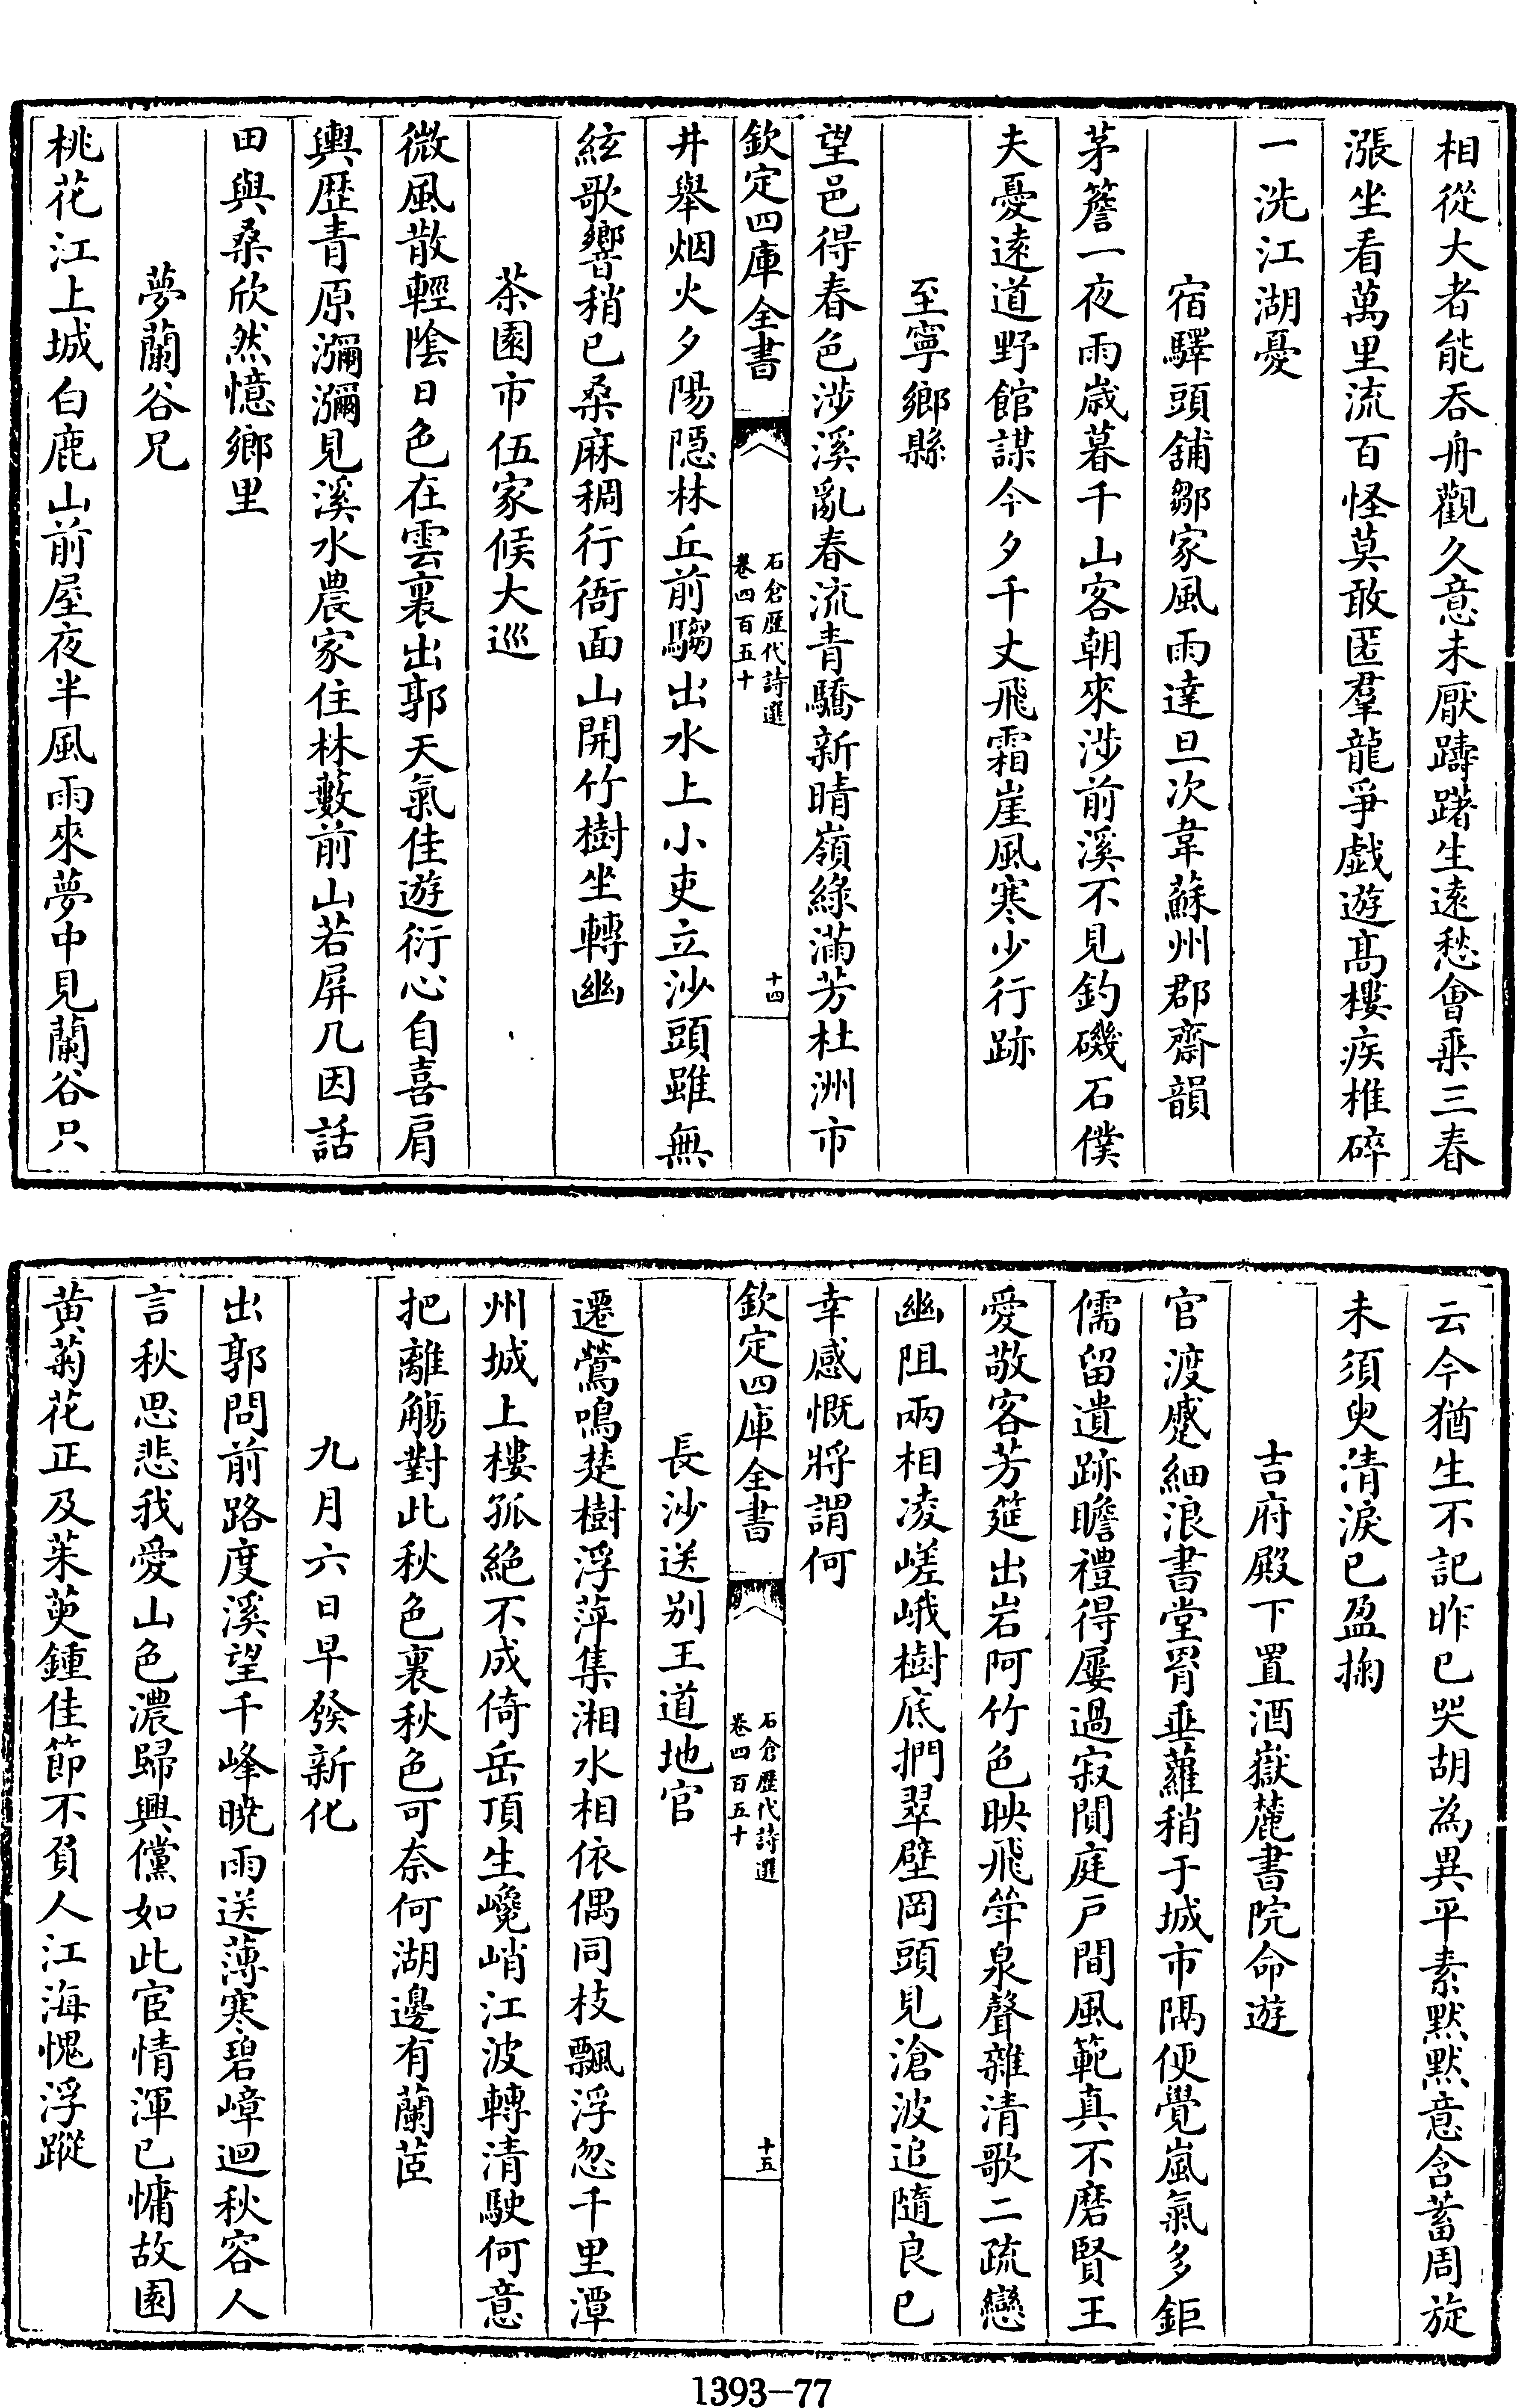 相從大者能吞舟觀久意未厭躊躇生遠愁會乗三春
漲坐看萬里流百怪莫敢匿羣龍爭戯遊髙樓疾椎碎
一洗江湖憂
宿驛頭舖鄒家風雨達旦次韋蘇州郡齋韻
茅簷一夜雨歳暮千山客朝來渉前溪不見釣磯石僕
夫憂遠道野館謀今夕千丈飛霜崖風寒少行跡
至寧鄉縣
望邑得春色渉溪亂春流青驕新晴嶺綠滿芳杜洲市
欽定四庫全書
石倉歴代詩選
卷四百五十
十四
井舉烟火夕陽隠林丘前騶出水上小吏立沙頭雖無
絃歌響稍已桑麻稠行衙面山開竹樹坐轉幽
茶園市伍家候大巡
微風散輕隂日色在雲裏出郭天氣佳遊衍心自喜肩
輿歴青原瀰瀰見溪水農家住林藪前山若屏几因話
田與桑欣然憶鄉里
夢蘭谷兄
桃花江上城白鹿山前屋夜半風雨來夢中見蘭谷只
云今猶生不記昨已哭胡為異平素默默意含蓄周旋
未須臾清淚已盈掬
吉府殿下置酒嶽麓書院命遊
官渡蹙細浪書堂罥垂蘿稍于城市隅便覺嵐氣多鉅
儒留遺跡瞻禮得屢過寂閴庭戸間風範真不磨賢王
愛敬客芳筵出岩阿竹色映飛斝泉聲雜清歌二疏戀
幽阻兩相凌嵯峨樹底捫翠壁岡頭見滄波追隨良已
幸感慨將謂何
欽定四庫全書
石倉歴代詩選
卷四百五十
十五
長沙送别王道地官
遷鶯鳴楚樹浮萍集湘水相依偶同枝飄浮忽千里潭
州城上樓孤絶不成倚岳頂生巉峭江波轉清駛何意
把離觴對此秋色裏秋色可奈何湖邊有蘭茝
九月六日早發新化
出郭問前路度溪望千峰曉雨送薄寒碧嶂迴秋容人
言秋思悲我愛山色濃歸興儻如此宦情渾已慵故園
黄菊花正及茱萸鍾佳節不負人江海愧浮蹤
1393-77